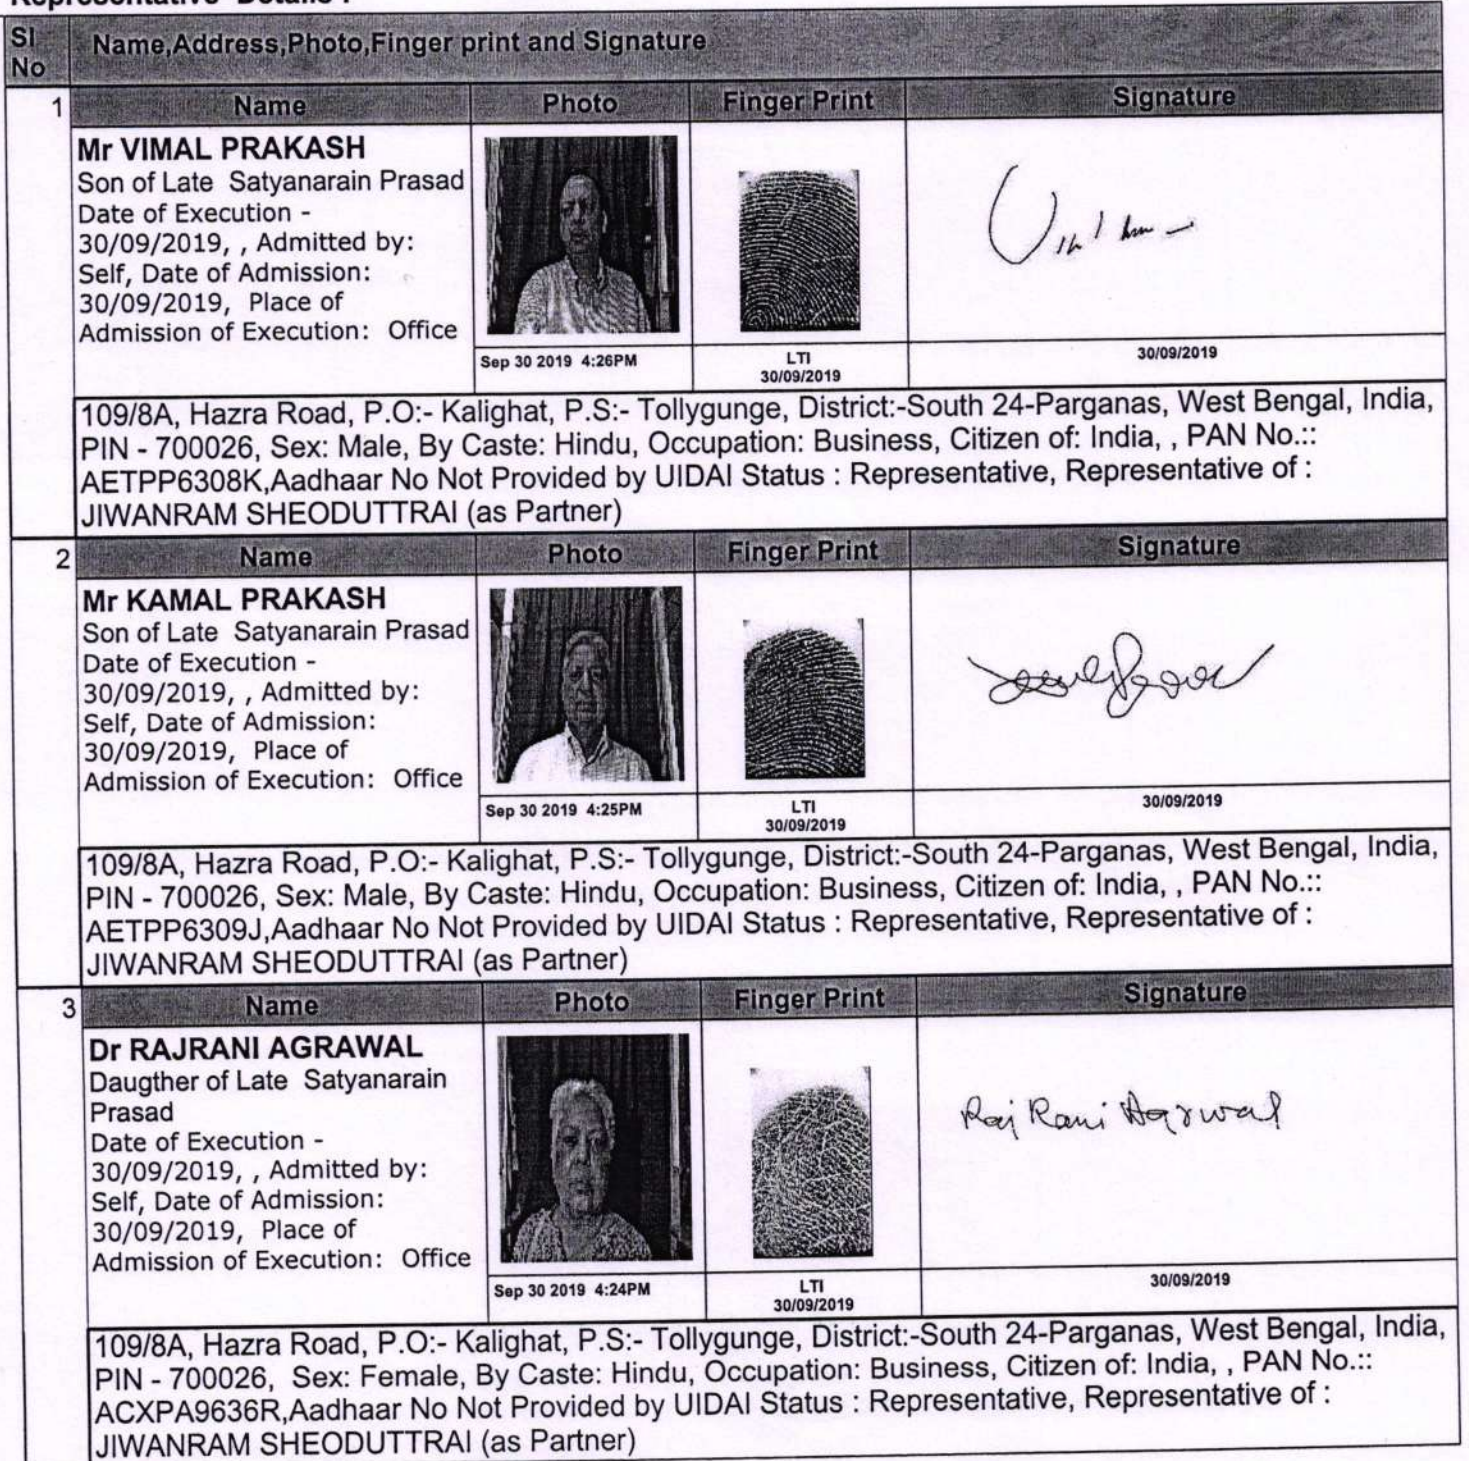 Representative Details :
Sl No
Name,Address,Photo,Finger print and Signature
1
Name Photo Finger Print Signature
Mr VIMAL PRAKASH
Son of Late Satyanarain Prasad
Date of Execution -
30/09/2019, , Admitted by:
Self, Date of Admission:
30/09/2019, Place of
Admission of Execution: Office
Sep 30 2019 4:26PM
LTI
30/09/2019
30/09/2019
109/8A, Hazra Road, P.O:- Kalighat, P.S:- Tollygunge, District:-South 24-Parganas, West Bengal, India,
PIN - 700026, Sex: Male, By Caste: Hindu, Occupation: Business, Citizen of: India, , PAN No.::
AETPP6308K,Aadhaar No Not Provided by UIDAI Status : Representative, Representative of :
JIWANRAM SHEODUTTRAI (as Partner)
2
Name Photo Finger Print Signature
Mr KAMAL PRAKASH
Son of Late Satyanarain Prasad
Date of Execution -
30/09/2019, , Admitted by:
Self, Date of Admission:
30/09/2019, Place of
Admission of Execution: Office
Sep 30 2019 4:25PM
LTI
30/09/2019
30/09/2019
109/8A, Hazra Road, P.O:- Kalighat, P.S:- Tollygunge, District:-South 24-Parganas, West Bengal, India,
PIN - 700026, Sex: Male, By Caste: Hindu, Occupation: Business, Citizen of: India, , PAN No.::
AETPP6309J,Aadhaar No Not Provided by UIDAI Status : Representative, Representative of :
JIWANRAM SHEODUTTRAI (as Partner)
3
Name Photo Finger Print Signature
Dr RAJRANI AGRAWAL
Daugther of Late Satyanarain
Prasad
Date of Execution -
30/09/2019, , Admitted by:
Self, Date of Admission:
30/09/2019, Place of
Admission of Execution: Office
Raj Rani Agrwal
Sep 30 2019 4:24PM
LTI
30/09/2019
30/09/2019
109/8A, Hazra Road, P.O:- Kalighat, P.S:- Tollygunge, District:-South 24-Parganas, West Bengal, India,
PIN - 700026, Sex: Female, By Caste: Hindu, Occupation: Business, Citizen of: India, , PAN No.::
ACXPA9636R,Aadhaar No Not Provided by UIDAI Status : Representative, Representative of :
JIWANRAM SHEODUTTRAI (as Partner)